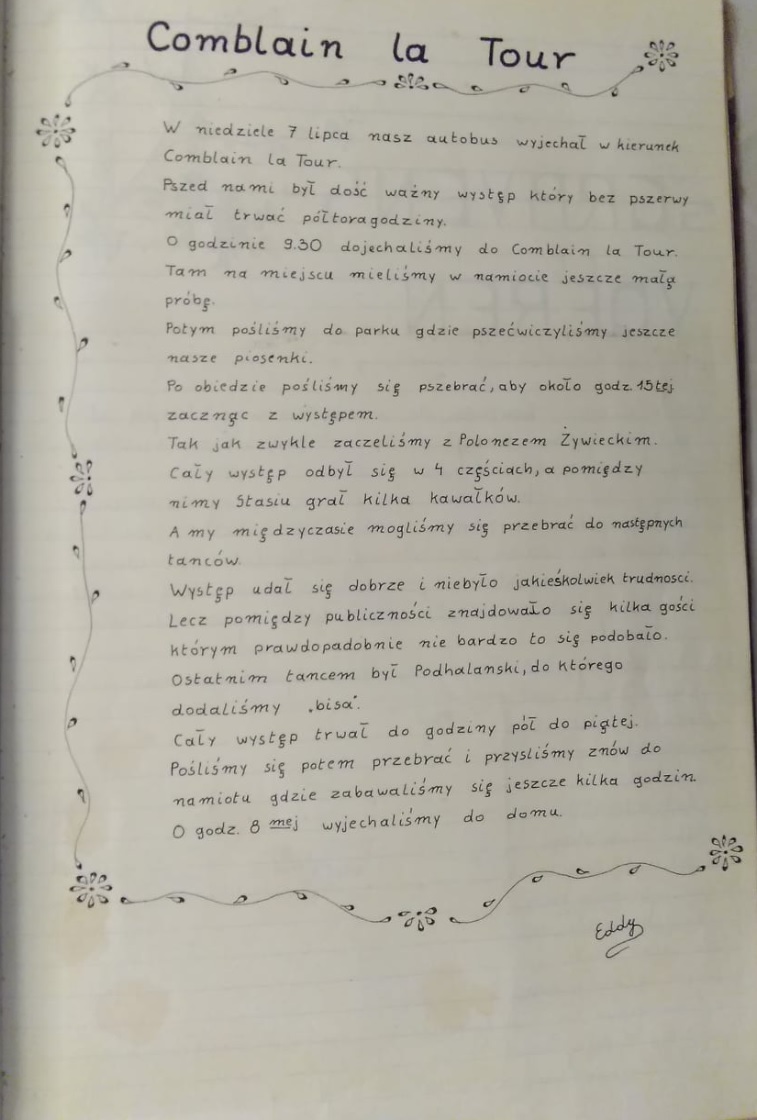 Comblain la Tour
W niedziele 7 lipca nasz autobus wyjechał w kierunek
Comblain la Tour.
Pszed nami był dość ważny występ który bez pszerwy
miał trwać półtoragodziny.
O godzinie 9.30 dojechaliśmy do Comblain la Tour.
Tam na miejscu mieliśmy w namiocie jeszcze małą
próbę.
Potym pośliśmy do parku gdzie pszećwiczyliśmy jeszcze
nasze piosenki.
Po obiedzie pośliśmy się pszebrać, aby około godz. 15tej
zacznąc z występem.
Tak jak zwykle zaczeliśmy z Polonezem Żywieckim.
Cały występ odbył się w 4 częściach, a pomiędzy
nimy Stasiu grał kilka kawałków.
A my międzyczasie mogliśmy się przebrać do następnych
tanców.
Występ udał się dobrze i niebyło jakieśkolwiek trudnosci.
Lecz pomiędzy publiczności znajdowało się kilka gości
którym prawdopadobnie nie bardzo to się podobało.
Ostatnim tancem był Podhalanski, do którego
dodaliśmy „bisa".
Cały występ trwał do godziny pół do piątej.
Pośliśmy się potem przebrać i przysliśmy znów do
namiotu gdzie zabawaliśmy się jeszcze kilka godzin.
O godz. 8 mej wyjechaliśmy do domu.
Eddy